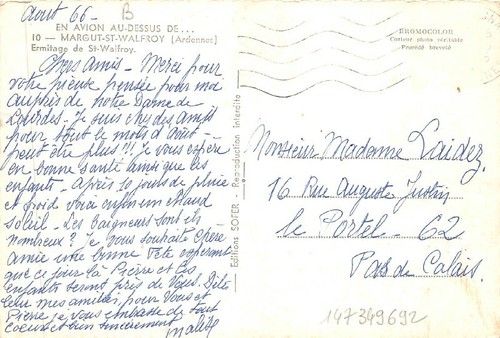 Aout 66 - B
EN AVION AU-DESSUS DE...
10 — MARGUT-ST-WALFROY (Ardennes)
Ermitage de St-Walfroy.
BROMOCOLOR
Couleur photo véritable
Procédé breveté
Chers Amis - Merci pour
votre pieuse pensée pour moi
auprès de Notre Dame de
Lourdes - Je suis chez des amis
pour tout le mois d'Aout -
peut être plus!!! Je vous espère
en bonne santé ainsi que les
enfants - Après 10 jours de pluie
et froid voici enfin un chaud
soleil - Les baigneurs sont ils
nombreux? Je vous souhaite Chère
amie une bonne fête espérant
que ce jour là Pierre et les
enfants seront près de Vous. Dites
leur mes amitiés, pour Vous et
Pierre je vous embrasse de tout
coeur et bien sincèrement
Editions SOFER - Reproduction Interdite
Monsieur Madame Laidez
16 Rue Auguste Justin
le Portel - 62
Pas de Calais.
147349692